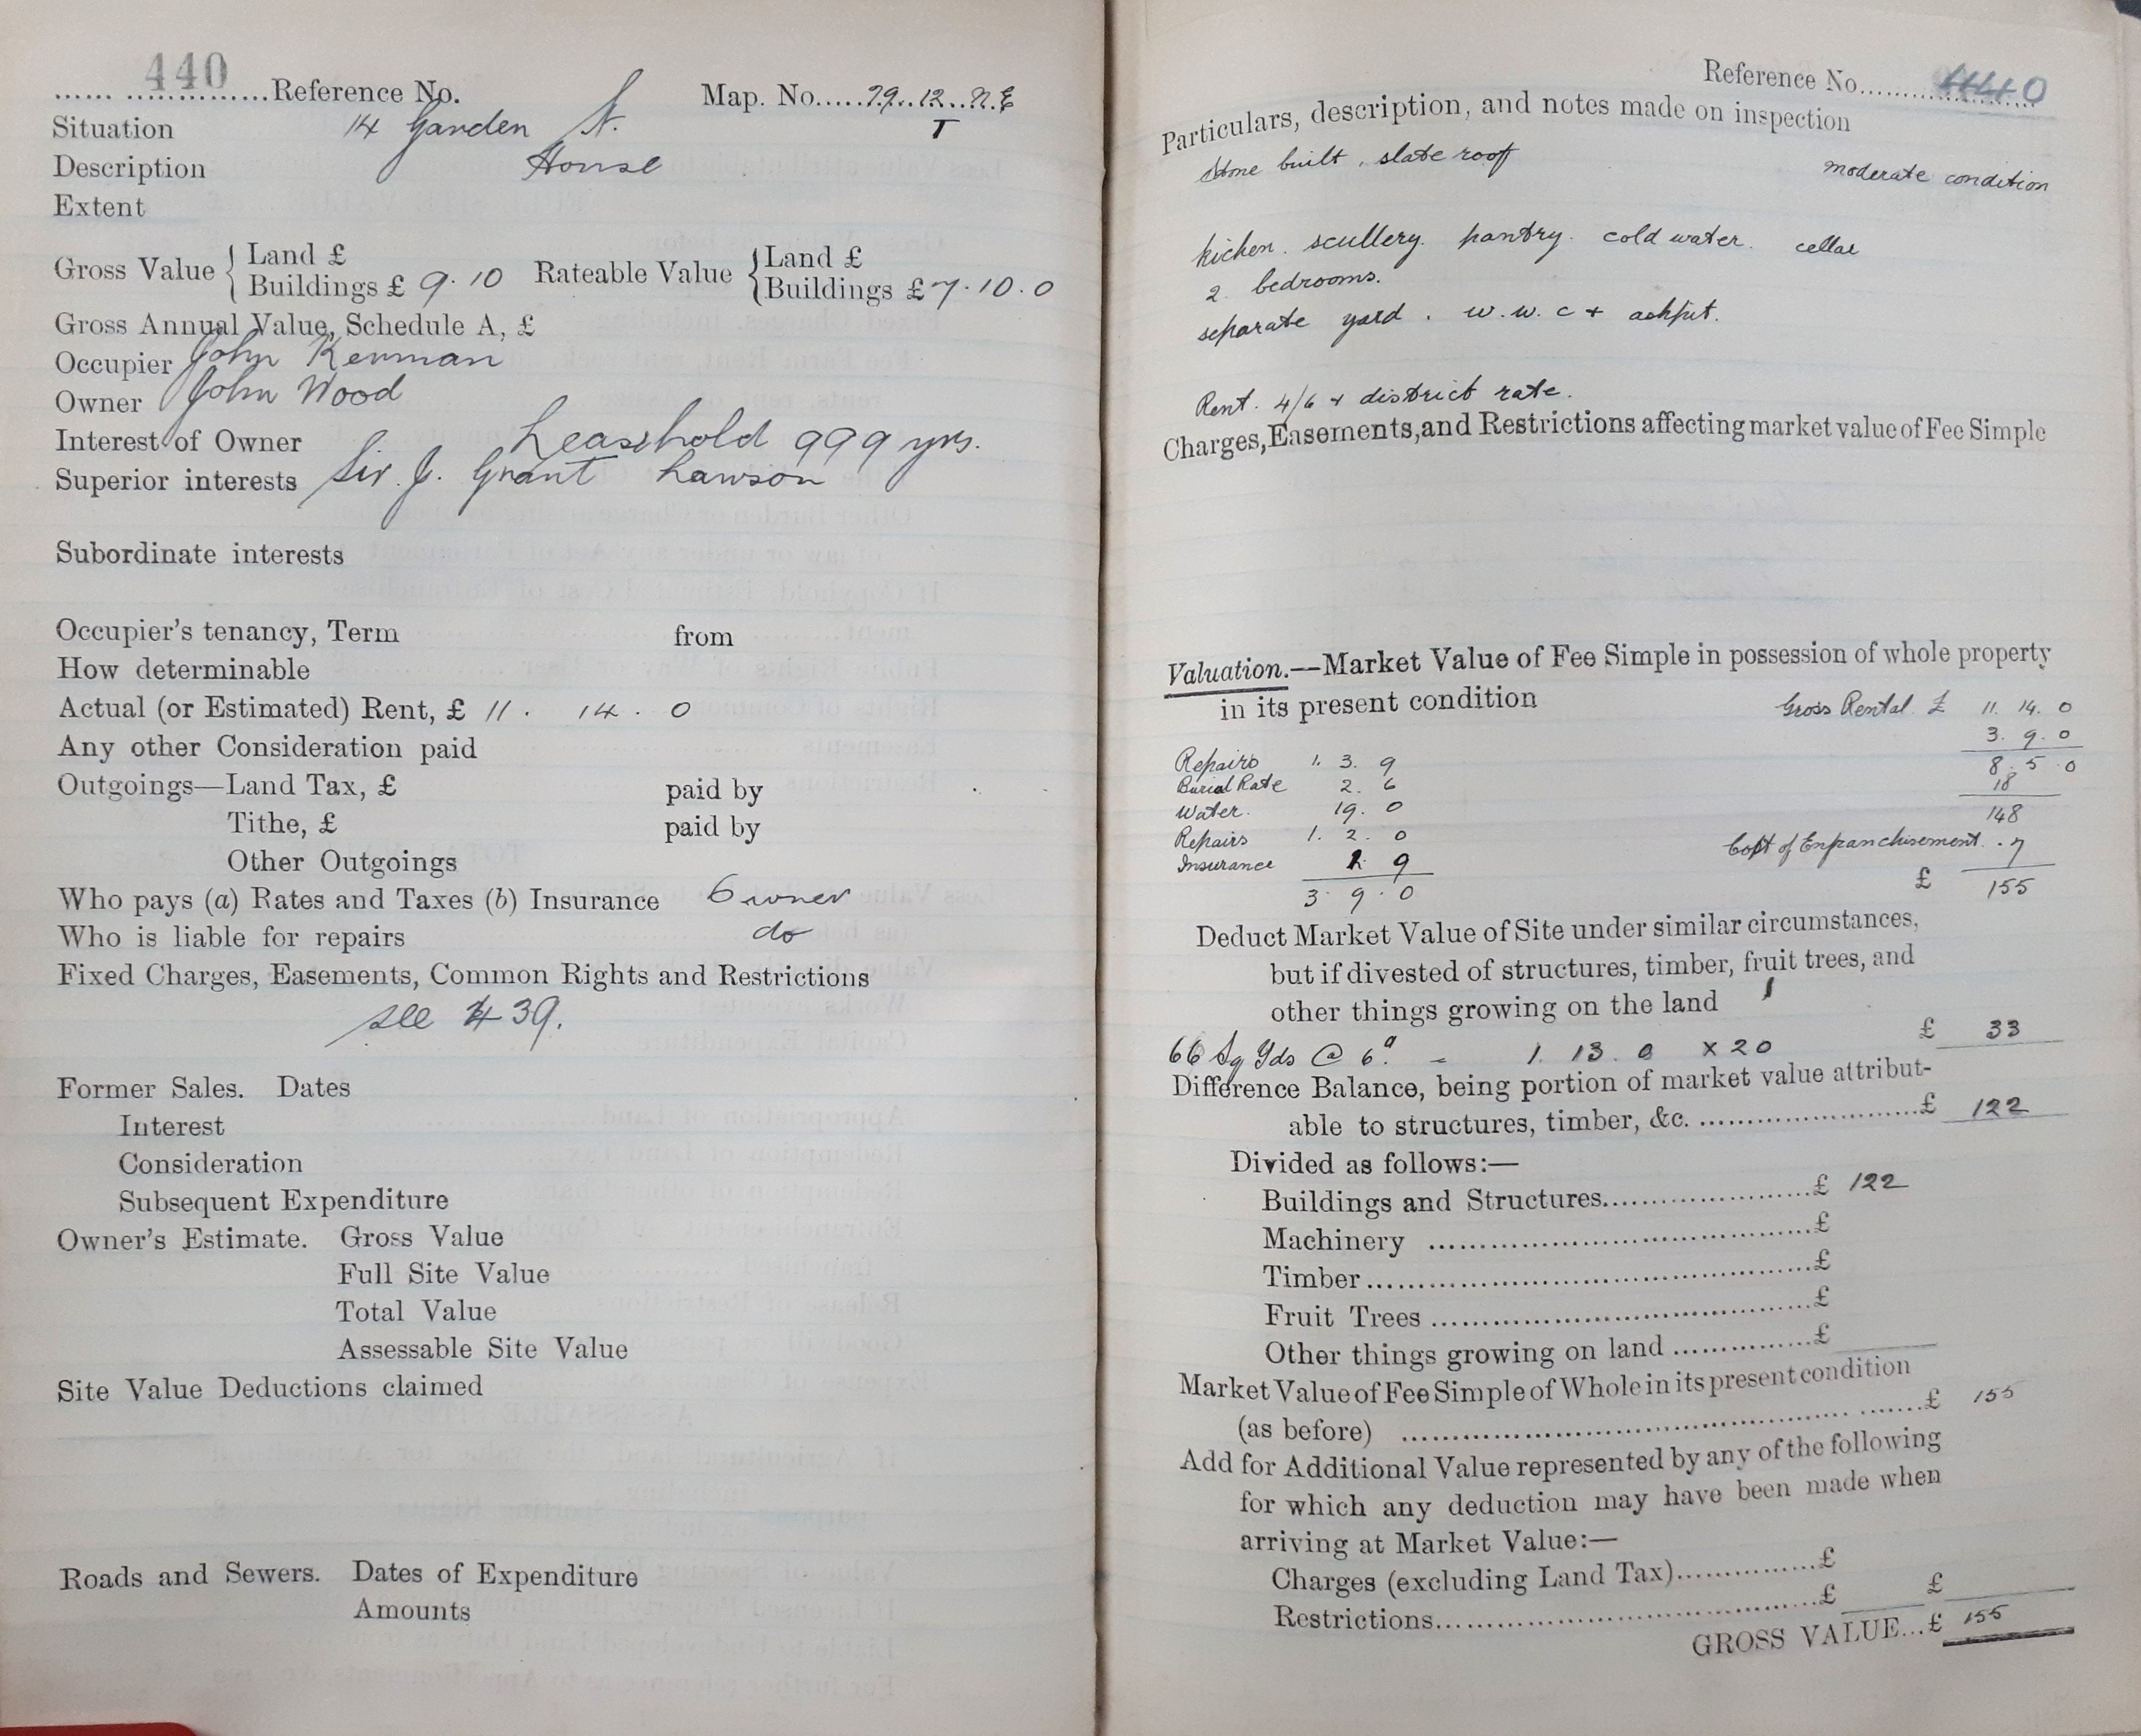 440
...... ..............Reference No. Map. No.....79..12..N.E
T
Situation 14 Garden St.
Description House
Extent
Gross Value { Land £ Rateable Value { Land £
Buildings £ 9.10 Buildings £ 7.10.0
Gross Annual Value, Schedule A, £
Occupier John Kenman
Owner John Wood
Interest of Owner Leasehold 999 yrs.
Superior interests Sir. J. Grant Lawson
Subordinate interests
Occupier's tenancy, Term from
How determinable
Actual (or Estimated) Rent, £ 11. 14. 0
Any other Consideration paid
Outgoings—Land Tax, £ paid by
Tithe, £ paid by
Other Outgoings
Who pays (a) Rates and Taxes (b) Insurance Owner
Who is liable for repairs do
Fixed Charges, Easements, Common Rights and Restrictions
see 439.
Former Sales. Dates
Interest
Consideration
Subsequent Expenditure
Owner's Estimate. Gross Value
Full Site Value
Total Value
Assessable Site Value
Site Value Deductions claimed
Roads and Sewers. Dates of Expenditure
Amounts
Reference No. 440
Particulars, description, and notes made on inspection
Stone built, slate roof moderate condition
kichen. scullery. pantry. cold water. cellar
2 bedrooms.
separate yard. w.w.c + ashpit.
Rent. 4/6 + district rate.
Charges, Easements, and Restrictions affecting market value of Fee Simple
Valuation.—Market Value of Fee Simple in possession of whole property
in its present condition Gross Rental £ 11. 14. 0
3. 9. 0
Repairs 1. 3. 9 8. 5. 0
Burial Rate 2. 6 18
Water. 19. 0 148
Repairs 1. 2. 0 Cost of Enfranchisement. 7
Insurance 1. 9 £ 155
3. 9. 0
Deduct Market Value of Site under similar circumstances,
but if divested of structures, timber, fruit trees, and
other things growing on the land
66 Sq Yds @ 6d. = 1. 13. 0 x 20 £ 33
Difference Balance, being portion of market value attribut-
able to structures, timber, &c. ......................£ 122
Divided as follows:—
Buildings and Structures......................£ 122
Machinery ......................£
Timber......................£
Fruit Trees ......................£
Other things growing on land ...............£
Market Value of Fee Simple of Whole in its present condition
(as before) ......................£ 155
Add for Additional Value represented by any of the following
for which any deduction may have been made when
arriving at Market Value:—
Charges (excluding Land Tax)...............£
Restrictions......................£ £
GROSS VALUE...£ 155